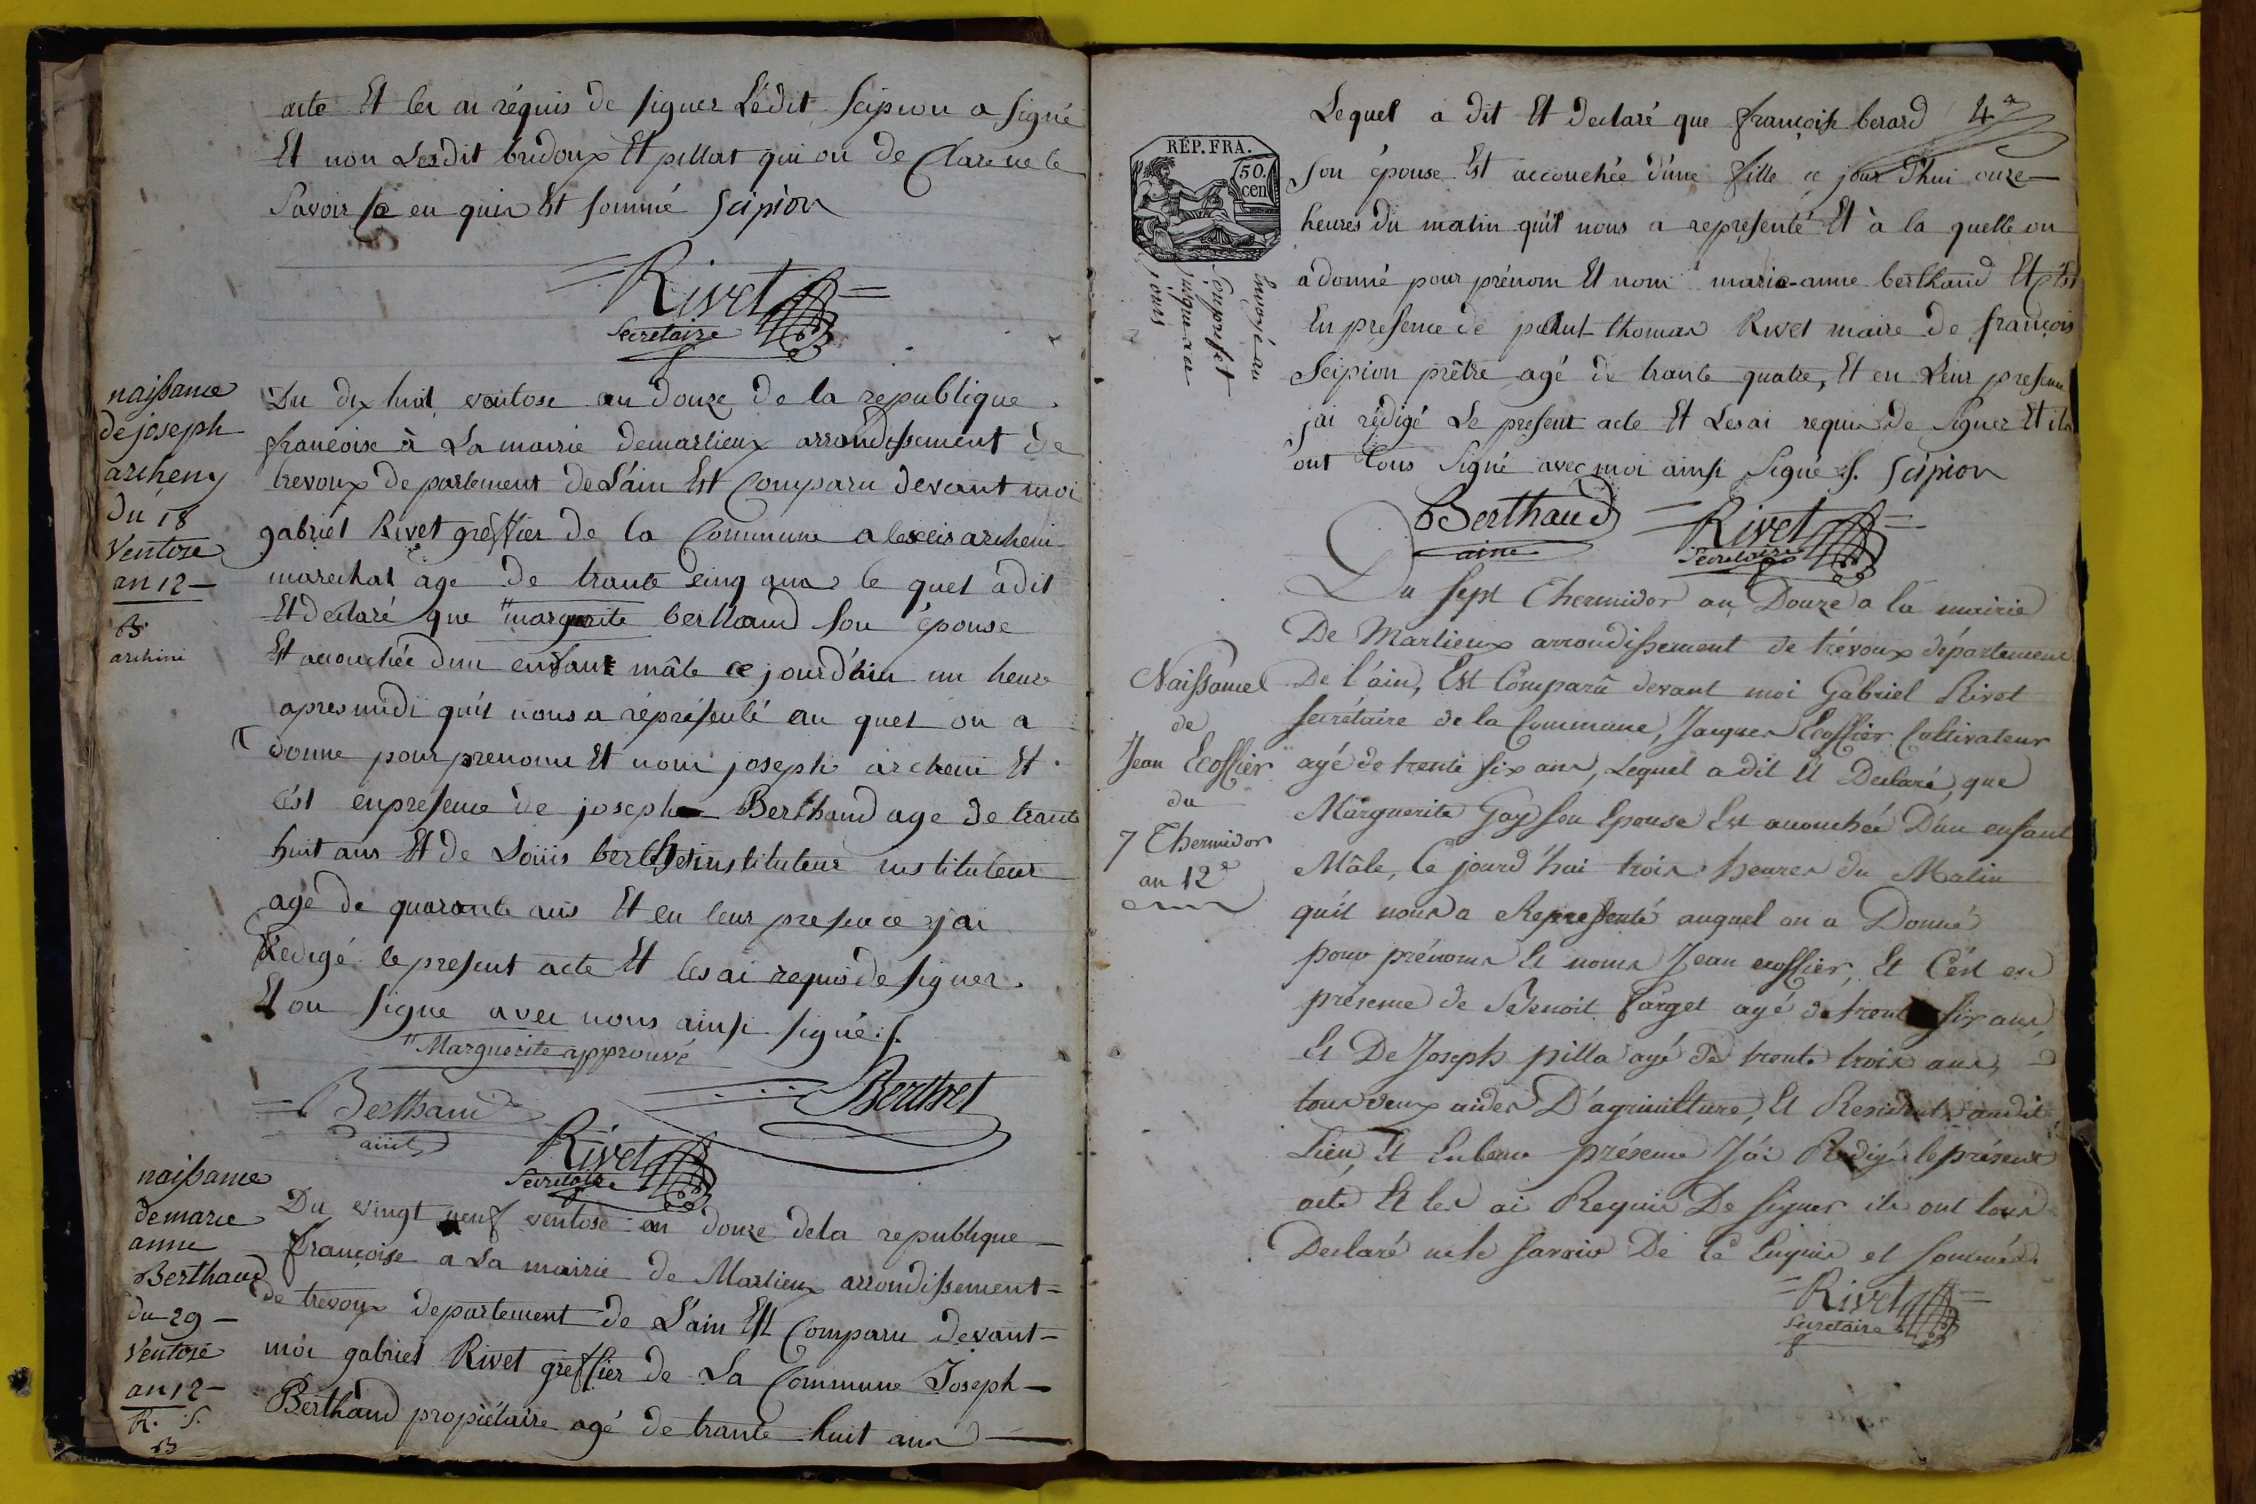 acte Et les ai réquis de signer Lédit Scipion a signé
Et non Lesdit bridoux Et pillat qui on de Clare ne le
Savoir ce en quis Est sommé Scipion
Rivet
Secretaire
naissance
de joseph
archeny
du 18
Ventose
an 12
B
archini
Du dix huit ventose an douze de la republique
françoise à La mairie demarlieux arrondissement de
trevoux departement deL'ain Est Comparu devant moi
gabriel Rivet greffier de la Commune alexcis archeni
marechal age de trante cinq ans le quel adit
Et declaré que marguerite berthaud son épouse
Est acouchée dun enfant mâle ce jourd'hui un heure
apres midi quil nous a réprésenté au quel on a
donne pour prenom Et nom joseph archeni Et
cést enpresence de joseph Berthaud age de trante
huit ans Et de Loüis berthet instituteur instituteur
agé de quarante ans Et en leur presence j'ai
Redigé le present acte Et les ai requis de signer
Et on signe avec nous ainsi signé S.
Marguerite approuvé
Berthaud
ainé
Berthet
Rivet
Secretaire
naissance
de marie
anne
Berthaud
du 29
Ventose
an 12
R. S.
B
Du vingt neuf ventose an douze dela republique
françoise a La mairie de Marlieux arrondissement
de trevoux departement de L'ain Est Comparu devant
moi gabriel Rivet greffier de La Commune Joseph
Berthaud propiétaire agé de trante huit ans
4
RÉP. FRA.
50.
cen
Lequel a dit Et declaré que françoise berard
son épouse Est accouchée d'une fille ce jour d'hui onze
heures du matin qu'il nous a representé Et à la quelle on
a donné pour prénom Et nom marie-anne berthaud Et c'ést
En presence de thomas Rivet maire de françois
Scipion prêtre agé de trante quatre, Et en Leur presence
j'ai rédigé Le present acte Et Les ai requis de Signer Et ils
ont tous Signé avec moi ainsi Signé S. Scipion
Berthaud
ainé
Rivet
Secretaire
Naissance
de
Jean Ecossier
du
7 Thermidor
an 12e
Du Sept Thermidor an Douze a la mairie
De Marlieux arrondissement de trévoux département
De l'ain, Est Comparû devant moi Gabriel Rivet
secrétaire de la Commune, Jacques Ecoffier Cultivateur
agé de trente six ans, Lequel a dit Et Declaré, que
Marguerite Gay son Epouse Est acouchée D'un enfant
Mâle, Ce jourd'hui trois heures du Matin
qu'il nous a Representé auquel on a Donné
pour prénoms Et noms Jean ecossier, Et C'ést en
présence de Benoit farget agé de trente six ans
Et De Joseph pilla agé De trente trois ans
tous deux aides D'agriculture, Et Residents audit
Lieu, Et En leur présence J'ai Redigé le présent
acte Et les ai Requis De signer ils ont tous
Declaré ne le savoir De Ce Enquis et sommés.
Rivet
Secretaire